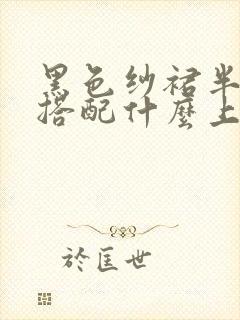 黑色纱裙半
搭配什麼上
於匡世